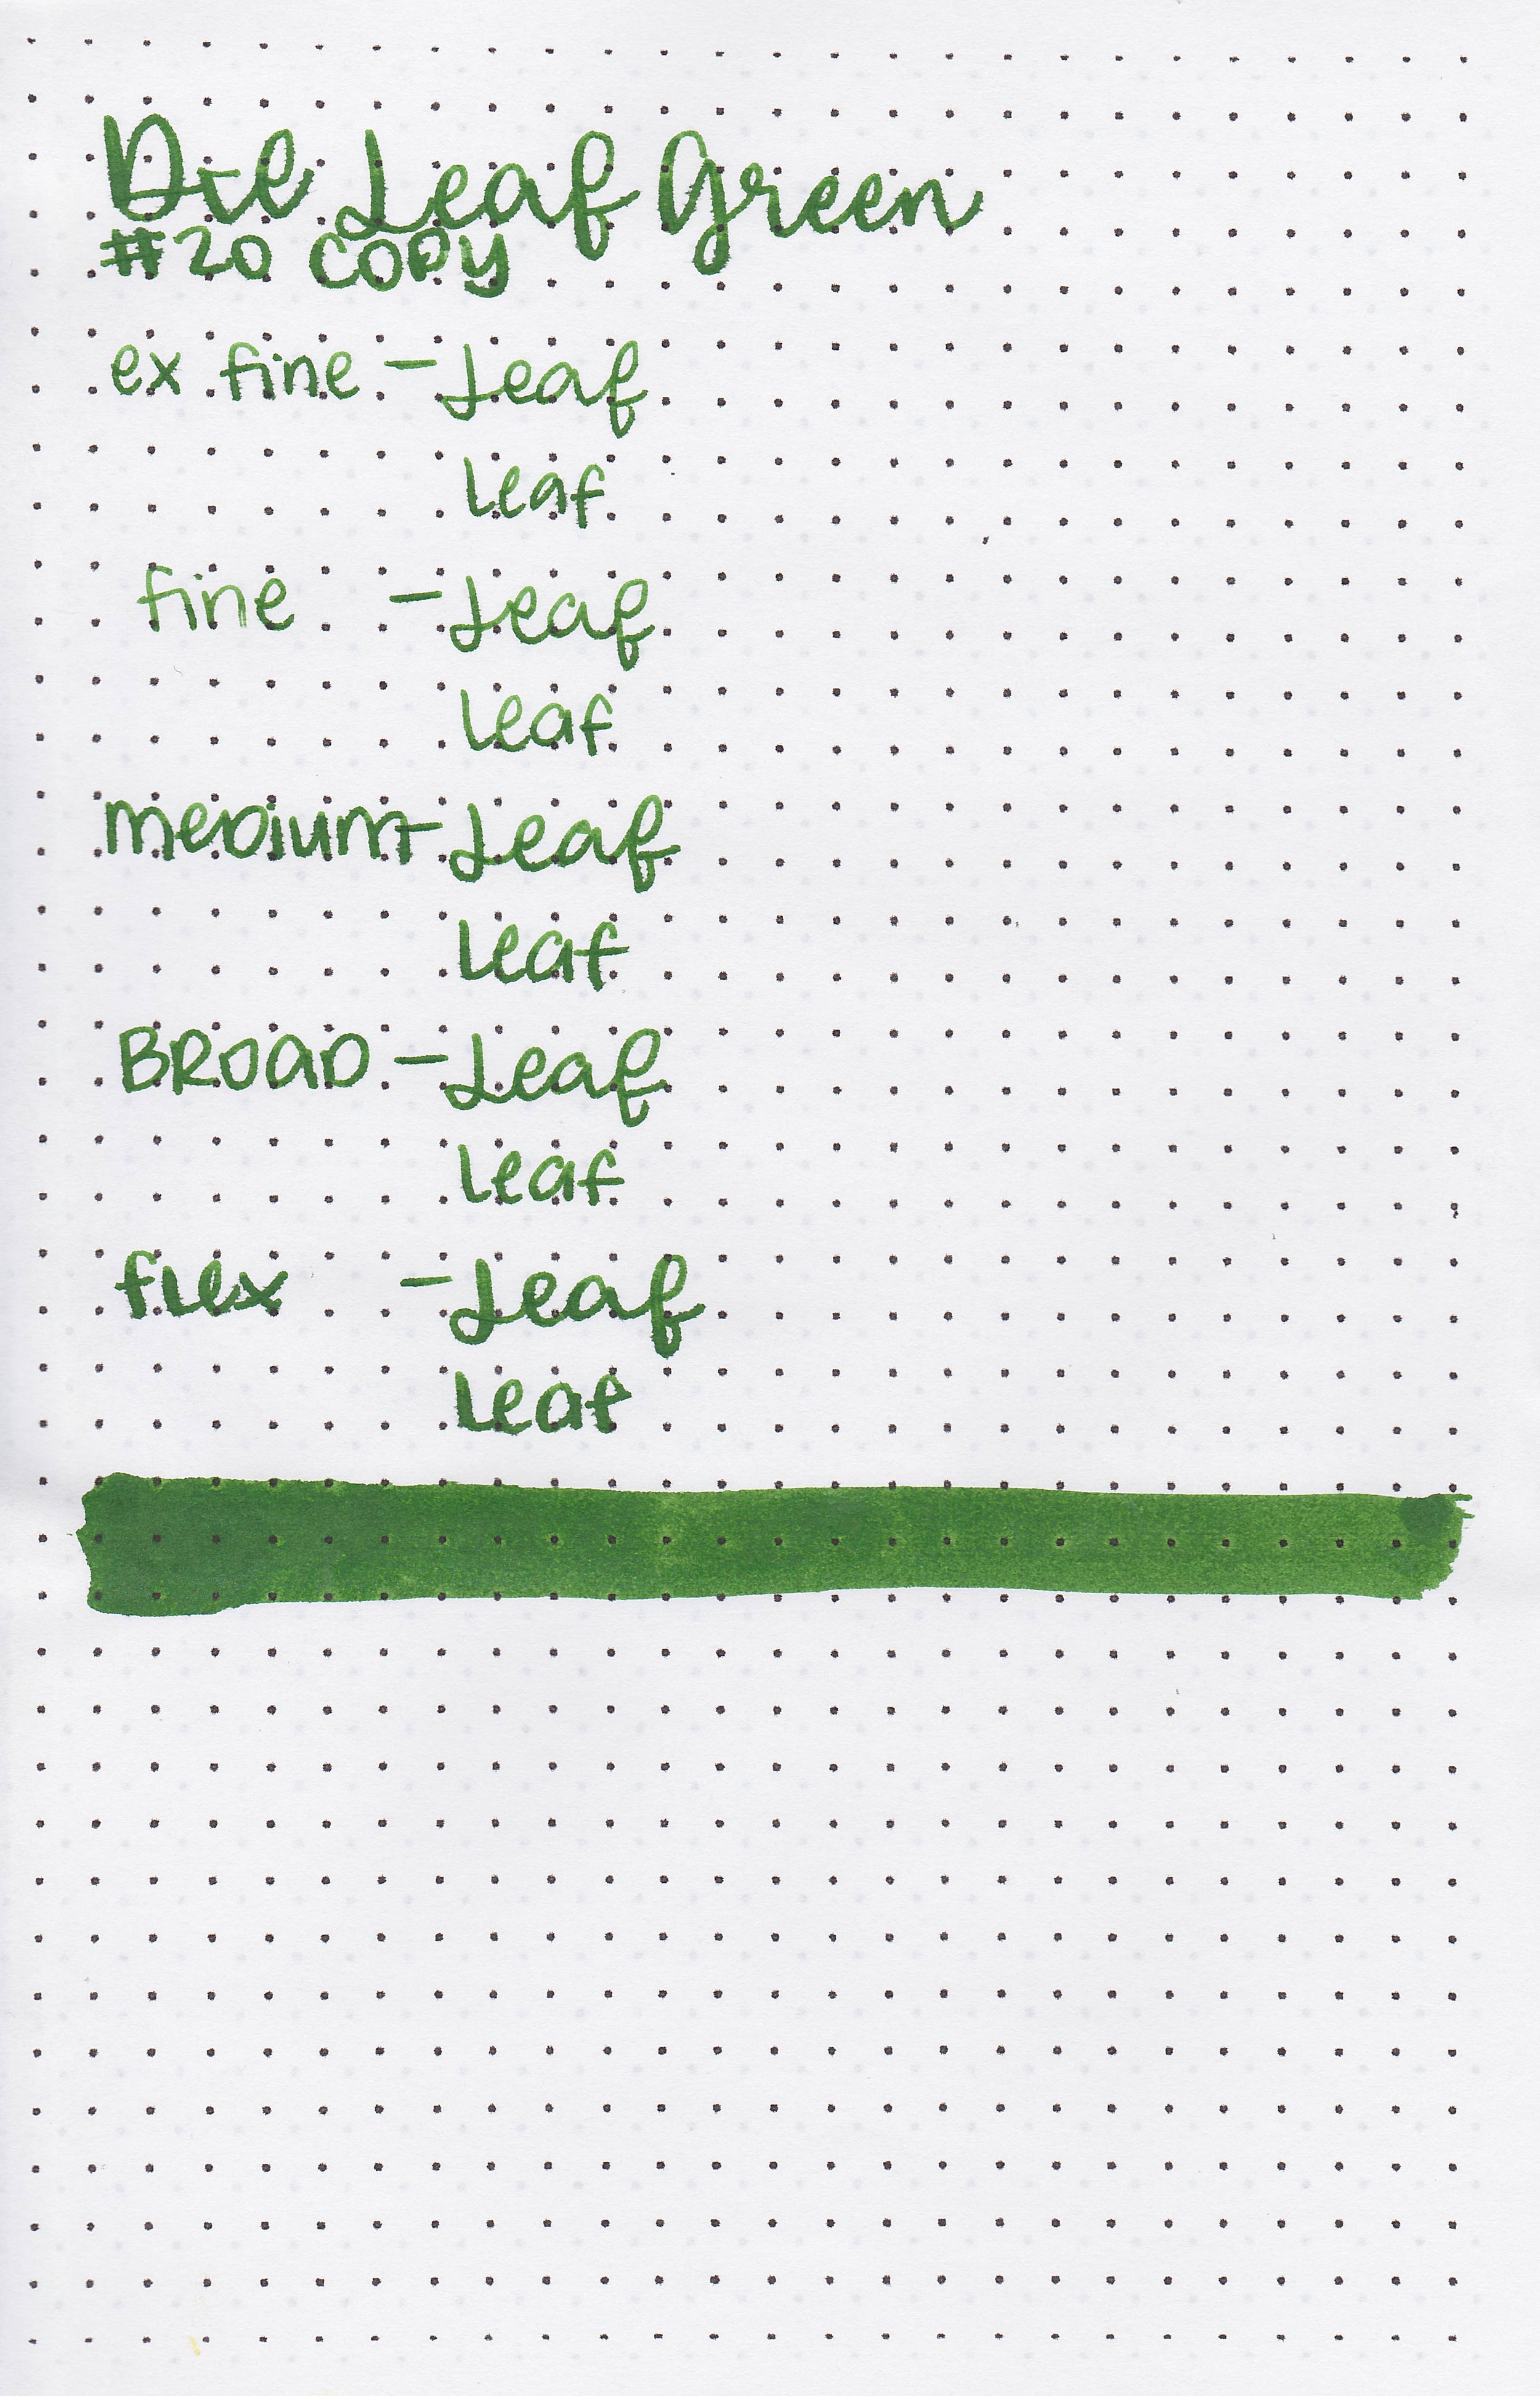 Leaf Green
#20 COPY
ex fine - Leaf
Leaf
fine - Leaf
Leaf
meDium - Leaf
Leaf
BROAD - Leaf
Leaf
flex - Leaf
Leaf